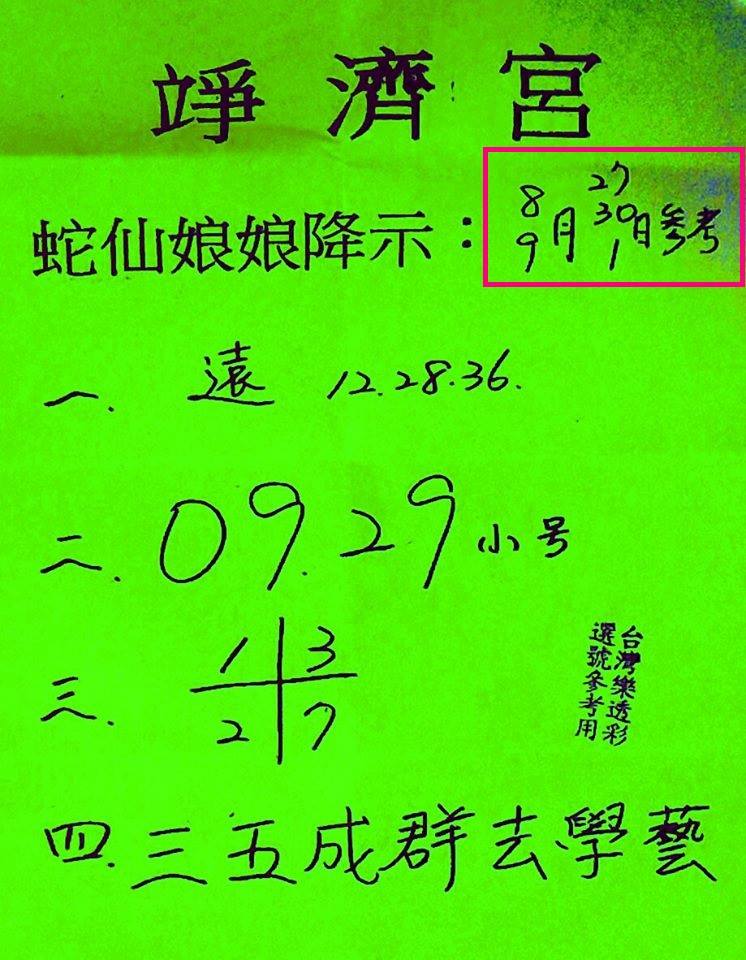 竫濟宮
蛇仙娘娘降示：
8月27
30日參考
9 1
一. 遠 12.28.36.
二. 09.29小号
三. 1 3
2 7
台灣樂透彩
選號參考用
四.三五成群去學藝